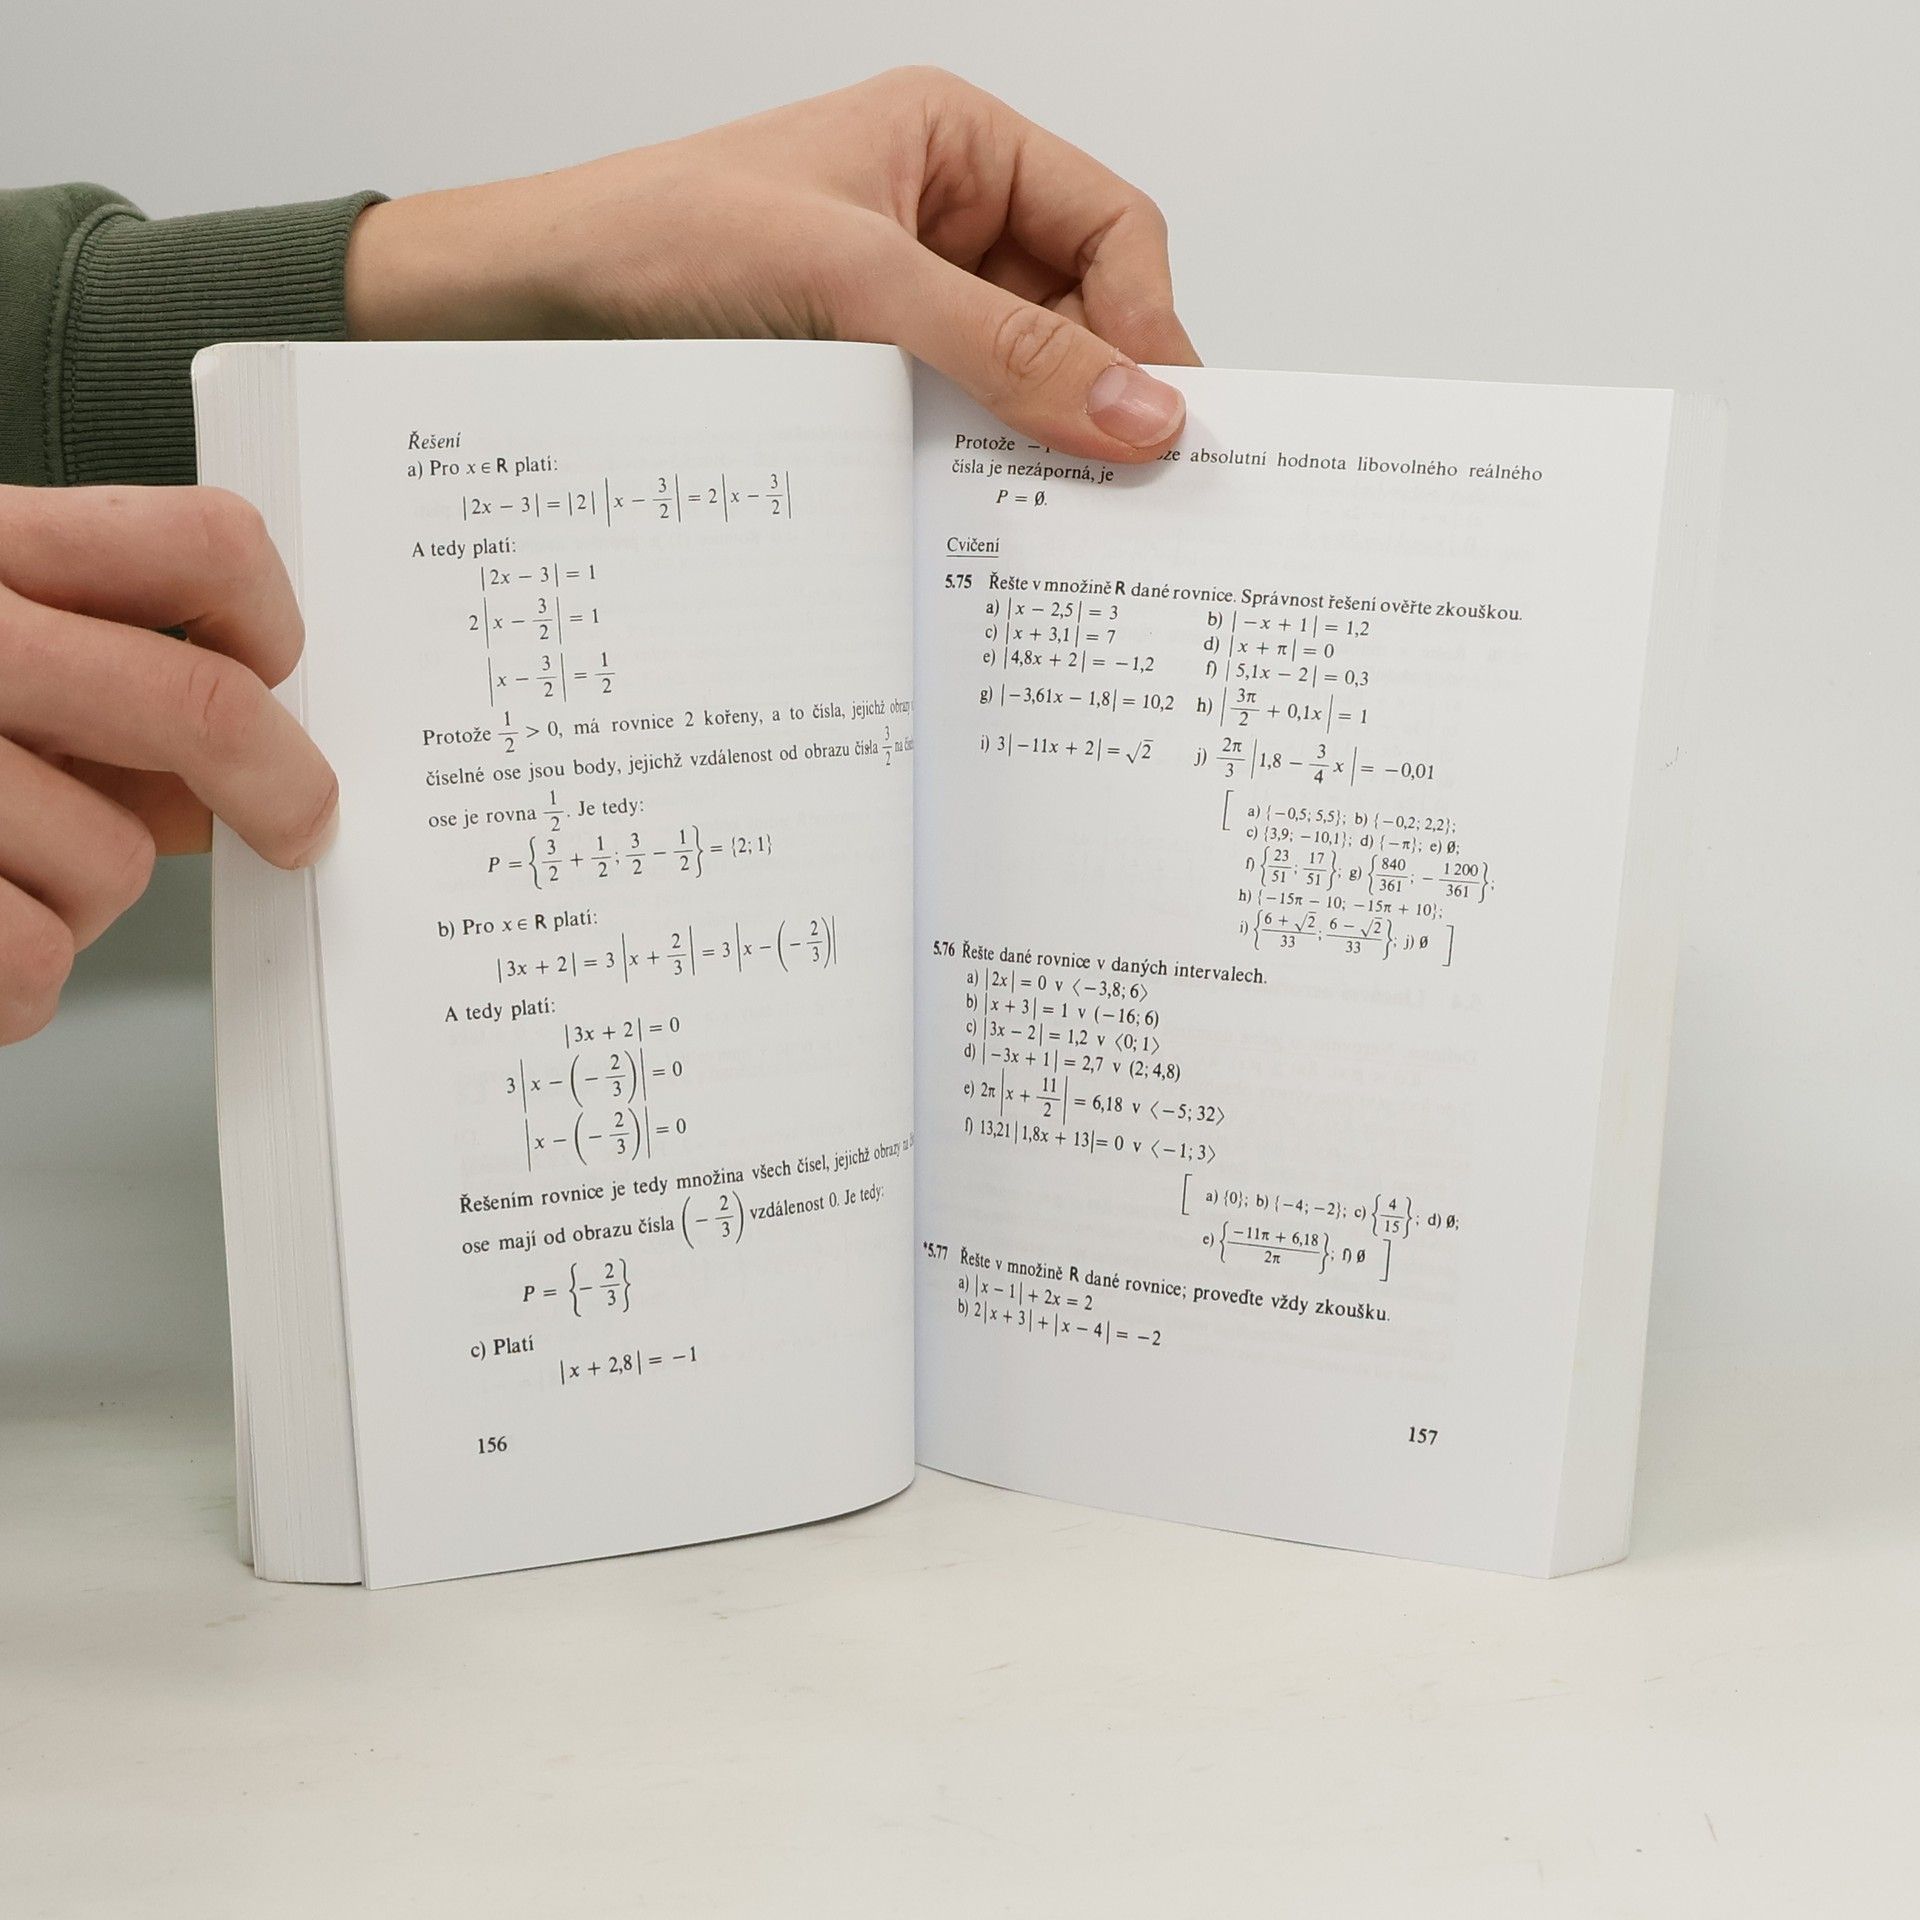 Řešení
a) Pro x ∈ R platí:
|2x − 3| = |2| |x − 3/2| = 2 |x − 3/2|
A tedy platí:
|2x − 3| = 1
2 |x − 3/2| = 1
|x − 3/2| = 1/2
Protože 1/2 > 0, má rovnice 2 kořeny, a to čísla, jejichž obrazy
číselné ose jsou body, jejichž vzdálenost od obrazu čísla 3/2 na
ose je rovna 1/2. Je tedy:
P = {3/2 + 1/2; 3/2 − 1/2} = {2; 1}
b) Pro x ∈ R platí:
|3x + 2| = 3 |x + 2/3| = 3 |x − (−2/3)|
A tedy platí:
|3x + 2| = 0
3 |x − (−2/3)| = 0
|x − (−2/3)| = 0
Řešením rovnice je tedy množina všech čísel, jejichž obrazy na
ose mají od obrazu čísla (−2/3) vzdálenost 0. Je tedy:
P = {−2/3}
c) Platí
|x + 2,8| = −1
156
Protože absolutní hodnota libovolného reálného
čísla je nezáporná, je
P = ∅.
Cvičení
5.75 Řešte v množině R dané rovnice. Správnost řešení ověřte zkouškou.
a) |x − 2,5| = 3 b) |−x + 1| = 1,2
c) |x + 3,1| = 7 d) |x + π| = 0
e) |4,8x + 2| = −1,2 f) |5,1x − 2| = 0,3
g) |−3,61x − 1,8| = 10,2 h) |3π/2 + 0,1x| = 1
i) 3|−11x + 2| = √2 j) 2π/3 |1,8 − 3/4 x| = −0,01
[ a) {−0,5; 5,5}; b) {−0,2; 2,2};
c) {3,9; −10,1}; d) {−π}; e) ∅;
f) {23/51; 17/51}; g) {840/361; −1 200/361};
h) {−15π − 10; −15π + 10};
i) {(6 + √2)/33; (6 − √2)/33}; j) ∅ ]
5.76 Řešte dané rovnice v daných intervalech.
a) |2x| = 0 v ⟨−3,8; 6⟩
b) |x + 3| = 1 v (−16; 6)
c) |3x − 2| = 1,2 v ⟨0; 1⟩
d) |−3x + 1| = 2,7 v (2; 4,8)
e) 2π |x + 11/2| = 6,18 v ⟨−5; 32⟩
f) 13,21 |1,8x + 13| = 0 v ⟨−1; 3⟩
[ a) {0}; b) {−4; −2}; c) {4/15}; d) ∅;
e) {(−11π + 6,18)/2π}; f) ∅ ]
*5.77 Řešte v množině R dané rovnice; proveďte vždy zkoušku.
a) |x − 1| + 2x = 2
b) 2|x + 3| + |x − 4| = −2
157